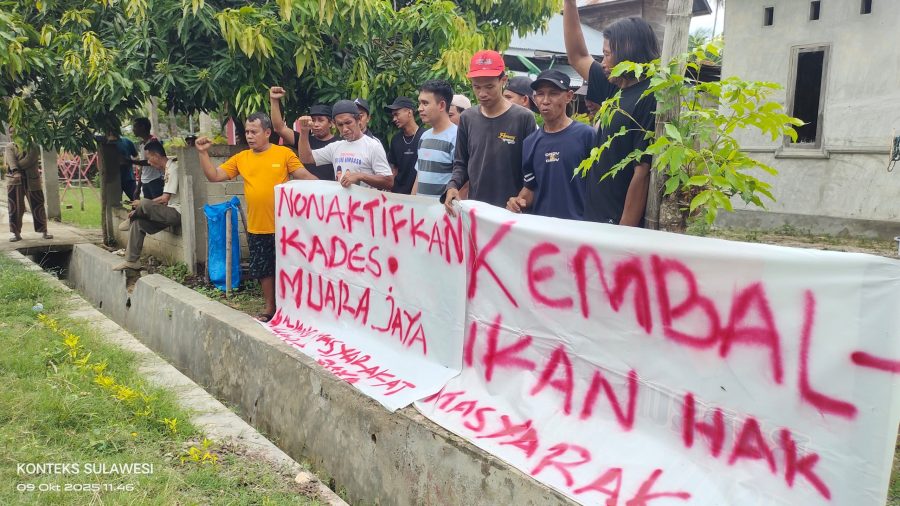 NONAKTIFKAN
KADES.
MUARA JAYA
MASYARAKAT
KEMBAL-
IKAN HAK
MASYARAK
KONTEKS SULAWESI
09 Okt 2025 11.46